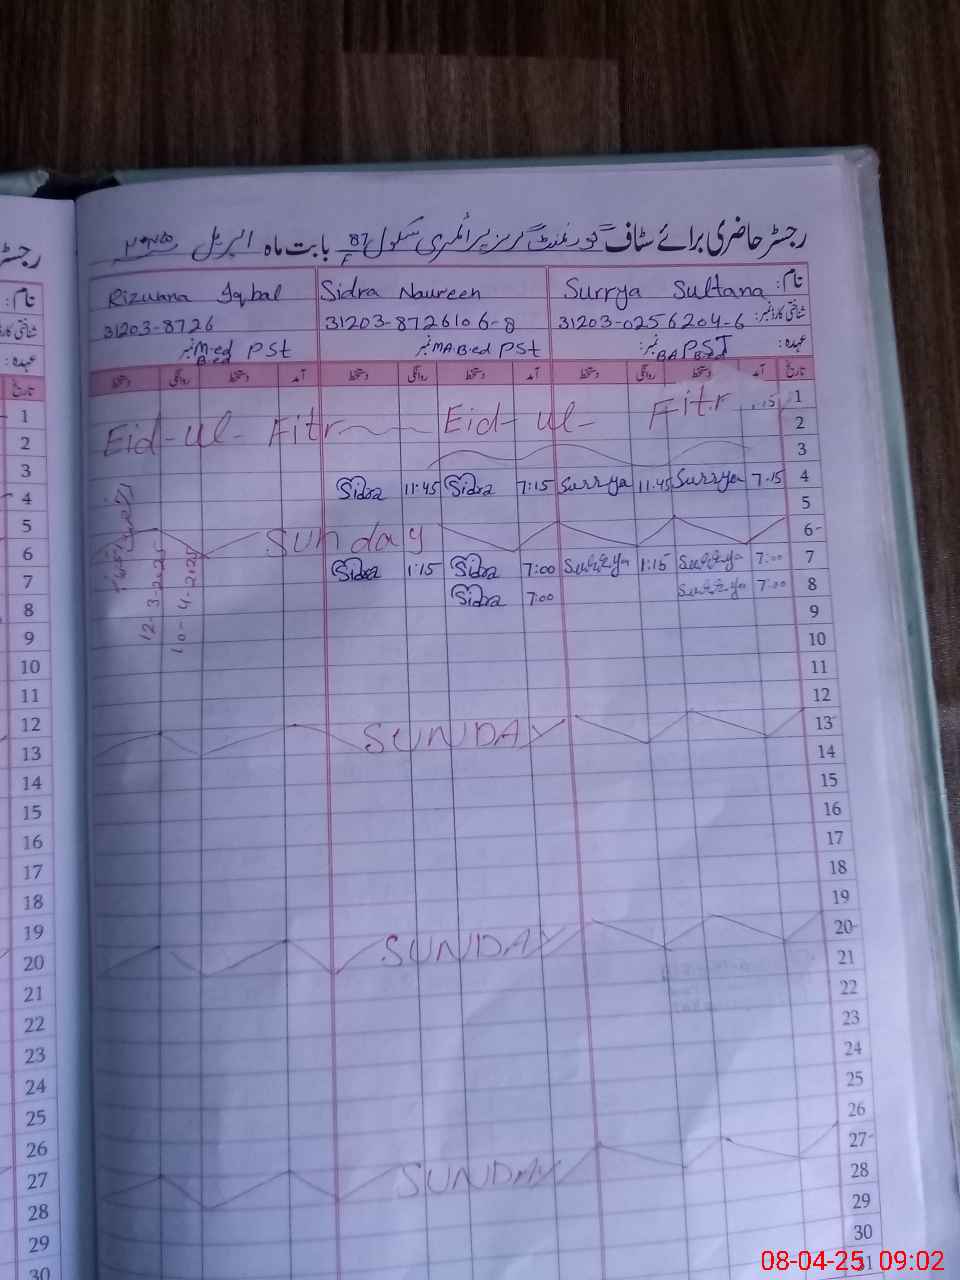 رجسٹر حاضری برائے سٹاف گورنمنٹ گرلز پرائمری سکول 87 بابت ماہ اپریل ۲۰۲۵
نام: Surrya Sultana Sidra Naureen Rizwana Iqbal
شناختی کارڈ نمبر: 31203-0256204-6 31203-8726106-8 31203-8726
عہدہ: نمبر BA B.ed PST نمبر MA B.ed PSt نمبر M-ed B.ed PSt
تاریخ آمد دستخط روانگی دستخط آمد دستخط روانگی دستخط آمد دستخط روانگی دستخط
1
Eid-ul-Fitr Eid-ul-Fitr
2
3
4 7-15 Surrya 11:45 Surrya 7:15 Sidra 11:45 Sidra
5
6 Sunday
7 7:00 Surrya 1:15 Surrya 7:00 Sidra 1:15 Sidra
8 7:00 Surrya 7:00 Sidra
12-3-2025
10-4-2025
9
10
11
12
13 SUNDAY
14
15
16
17
18
19
20 SUNDAY
21
22
23
24
25
26
27 SUNDAY
28
29
30
31
رجسٹر
نام:
عہدہ:
تاریخ
1
2
3
4
5
6
7
8
9
10
11
12
13
14
15
16
17
18
19
20
21
22
23
24
25
26
27
28
29
30
08-04-25 09:02